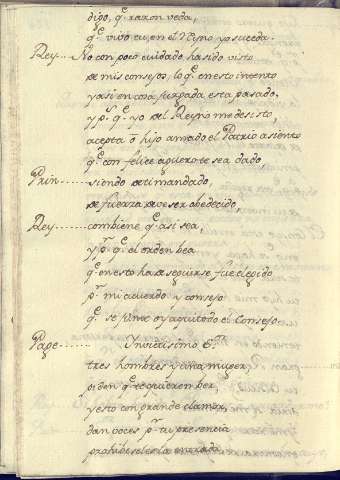 digo, q.e razon veda,
q.e vivo tu, en el Reyno yo suceda.
Rey.... No con poco cuidado ha sido visto
de mis consejos, lo q.e en esto intento
y asi en cosa juzgada esta pasado,
y p.r q.e yo del Reyno me desisto,
acepta ō hijo amado el Patrio asiento
q.e con felice aguero te sea dado,
Prin....... siendo de ti mandado,
de fuerza debe ser obedecido,
Rey....... combiene q.e asi sea,
y p.r q.e el orden bea
q.e en esto ha de seguirse fue elegido
p.r mi acuerdo y consejo
q.e se junte oy aqui todo el Consejo
Page......... Invictisimo
tres hombres y una muger,
piden q.e te quieren ber,
y esto con grande clamor,
dan voces p.r tu presencia
prohibeseles la entrada